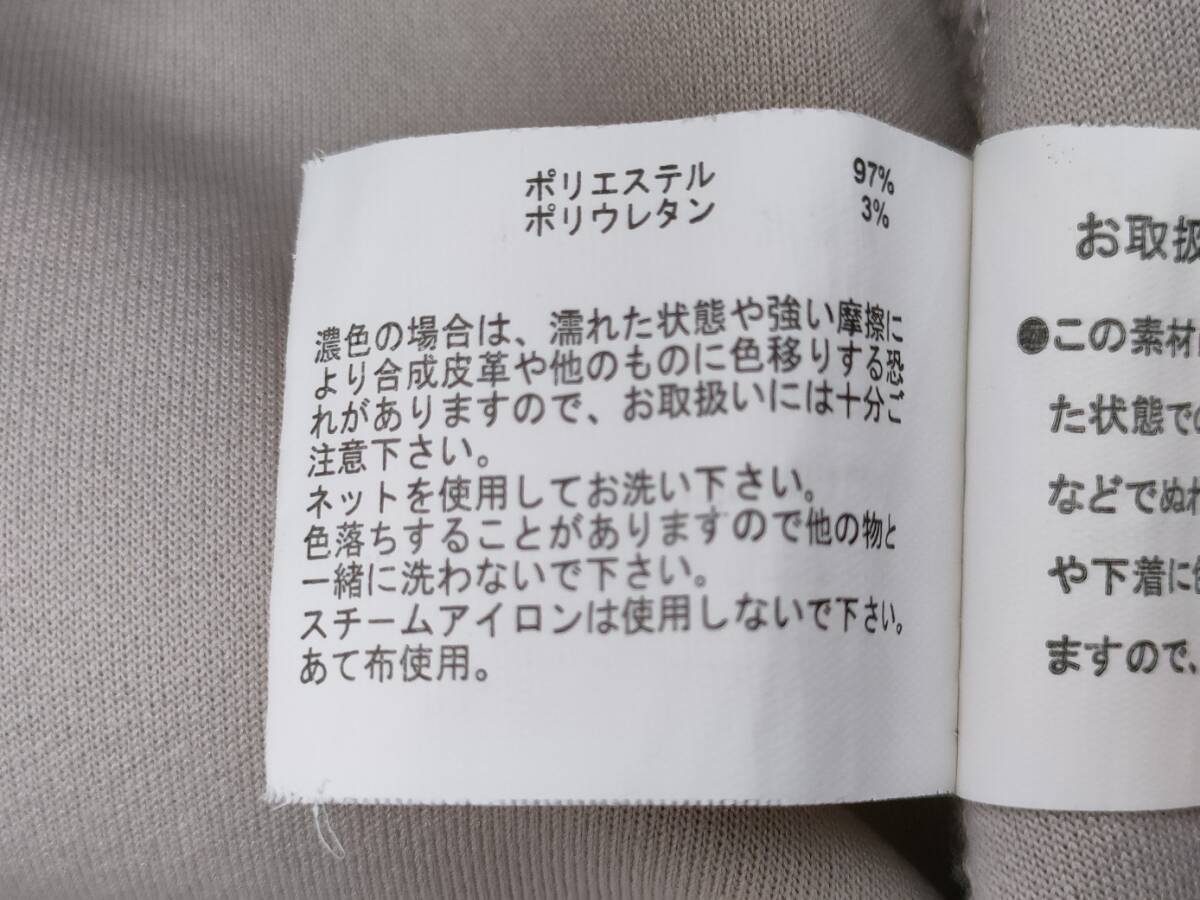 ポリエステル 97%
ポリウレタン 3%
濃色の場合は、濡れた状態や強い摩擦に
より合成皮革や他のものに色移りする恐
れがありますので、お取扱いには十分ご
注意下さい。
ネットを使用してお洗い下さい。
色落ちすることがありますので他の物と
一緒に洗わないで下さい。
スチームアイロンは使用しないで下さい。
あて布使用。
お取扱
●この素材
た状態で
などでぬ
や下着に
ますので、